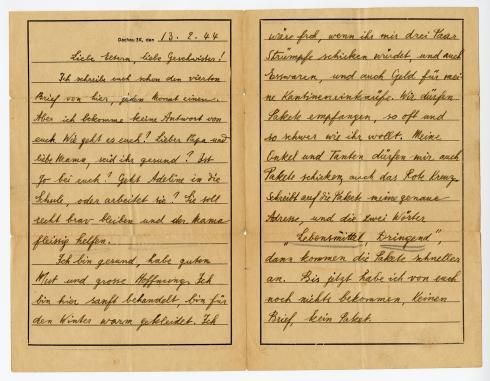 Dachau 3K, den 13. 2. 44
Liebe Eltern, liebe Geschwister!
Ich schreibe euch schon den vierten
Brief von hier, jeden Monat einen.
Aber ich bekomme keine Antwort von
euch. Wie geht es euch? Lieber Papa und
liebe Mama, seid ihr gesund? Ist
Jo bei euch? Geht Adeline in die
Schule, oder arbeitet sie? Sie soll
recht brav bleiben und der Mama
fleissig helfen.
Ich bin gesund, habe guten
Mut und grosse Hoffnung. Ich
bin hier sanft behandelt, bin für
den Winter warm gekleidet. Ich
wäre froh, wenn ihr mir drei Paar
Strümpfe schicken würdet, und auch
Esswaren, und auch Geld für mei
ne Kantineneinkäufe. Wir dürfen
Pakete empfangen, so oft und
so schwer wie ihr wollt. Meine
Onkel und Tanten dürfen mir auch
Pakete schicken, auch das Rote Kreuz.
Schreibt auf die Pakete meine genaue
Adresse, und die zwei Wörter
„Lebensmittel, Dringend",
dann kommen die Pakete schneller
an. Bis jetzt habe ich von euch
noch nichts bekommen, keinen
Brief, kein Paket.